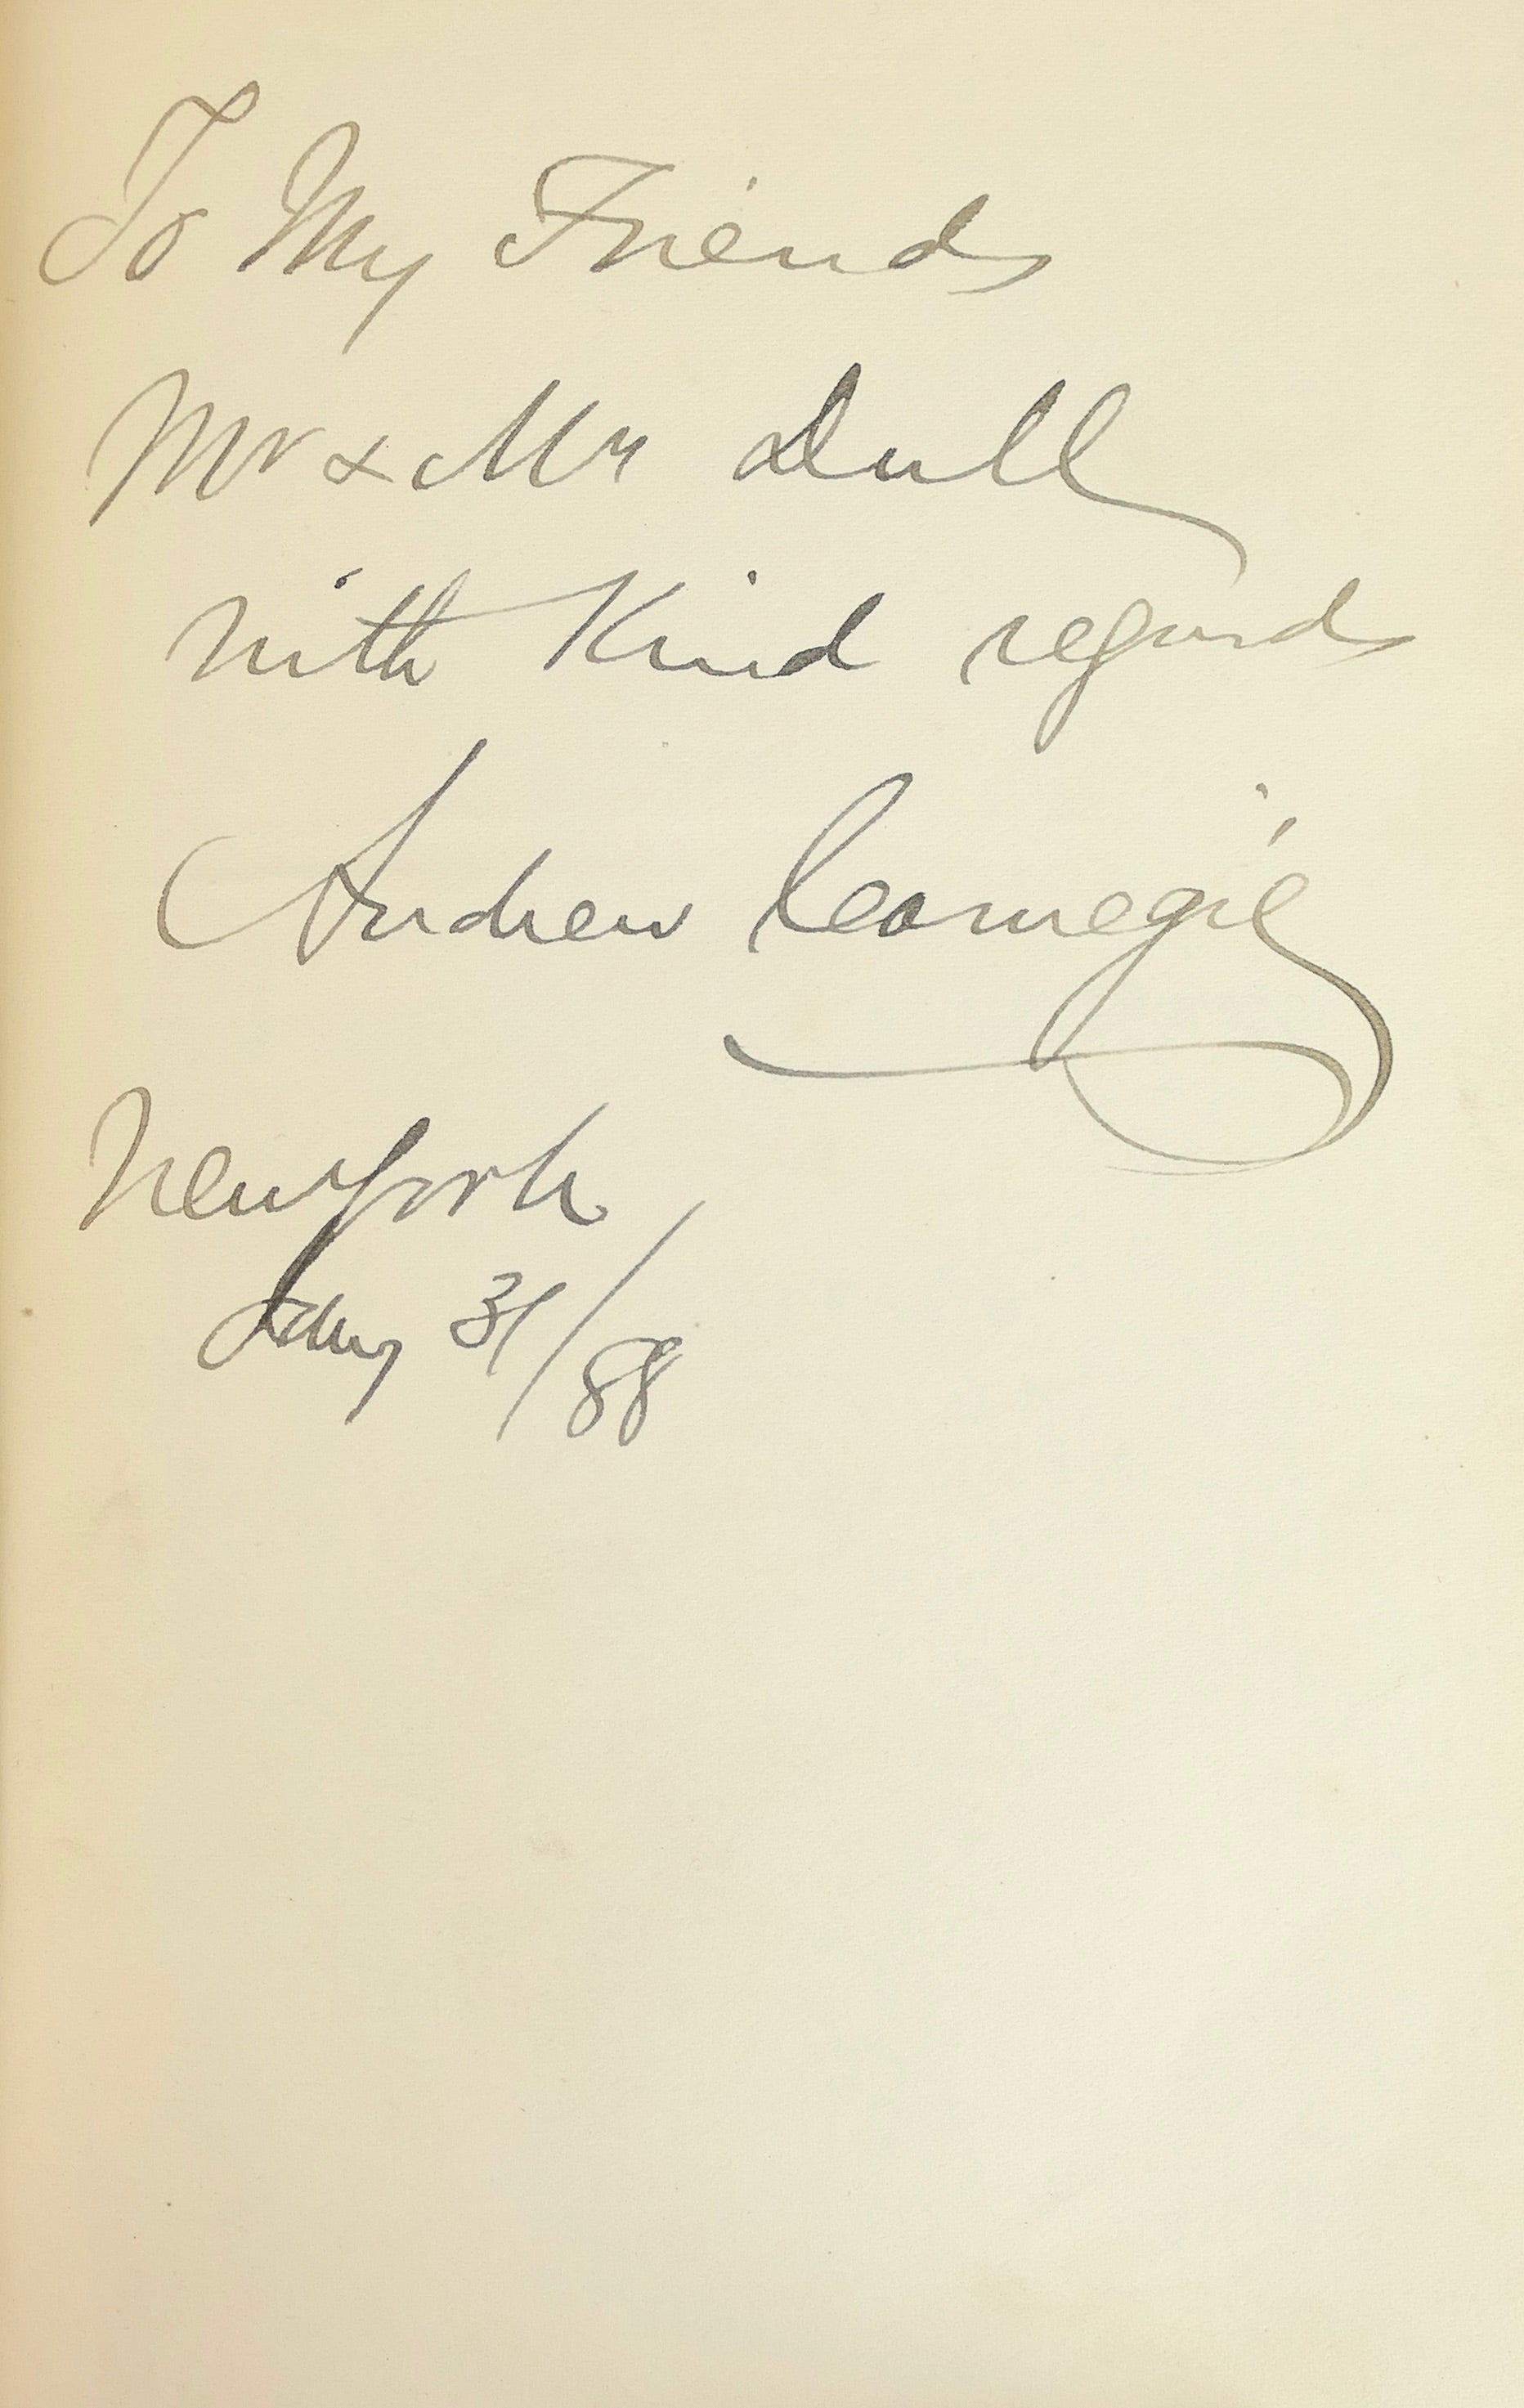 To My Friends
Mr & Mrs Dull
with Kind regards
Andrew Carnegie
New York
31/88